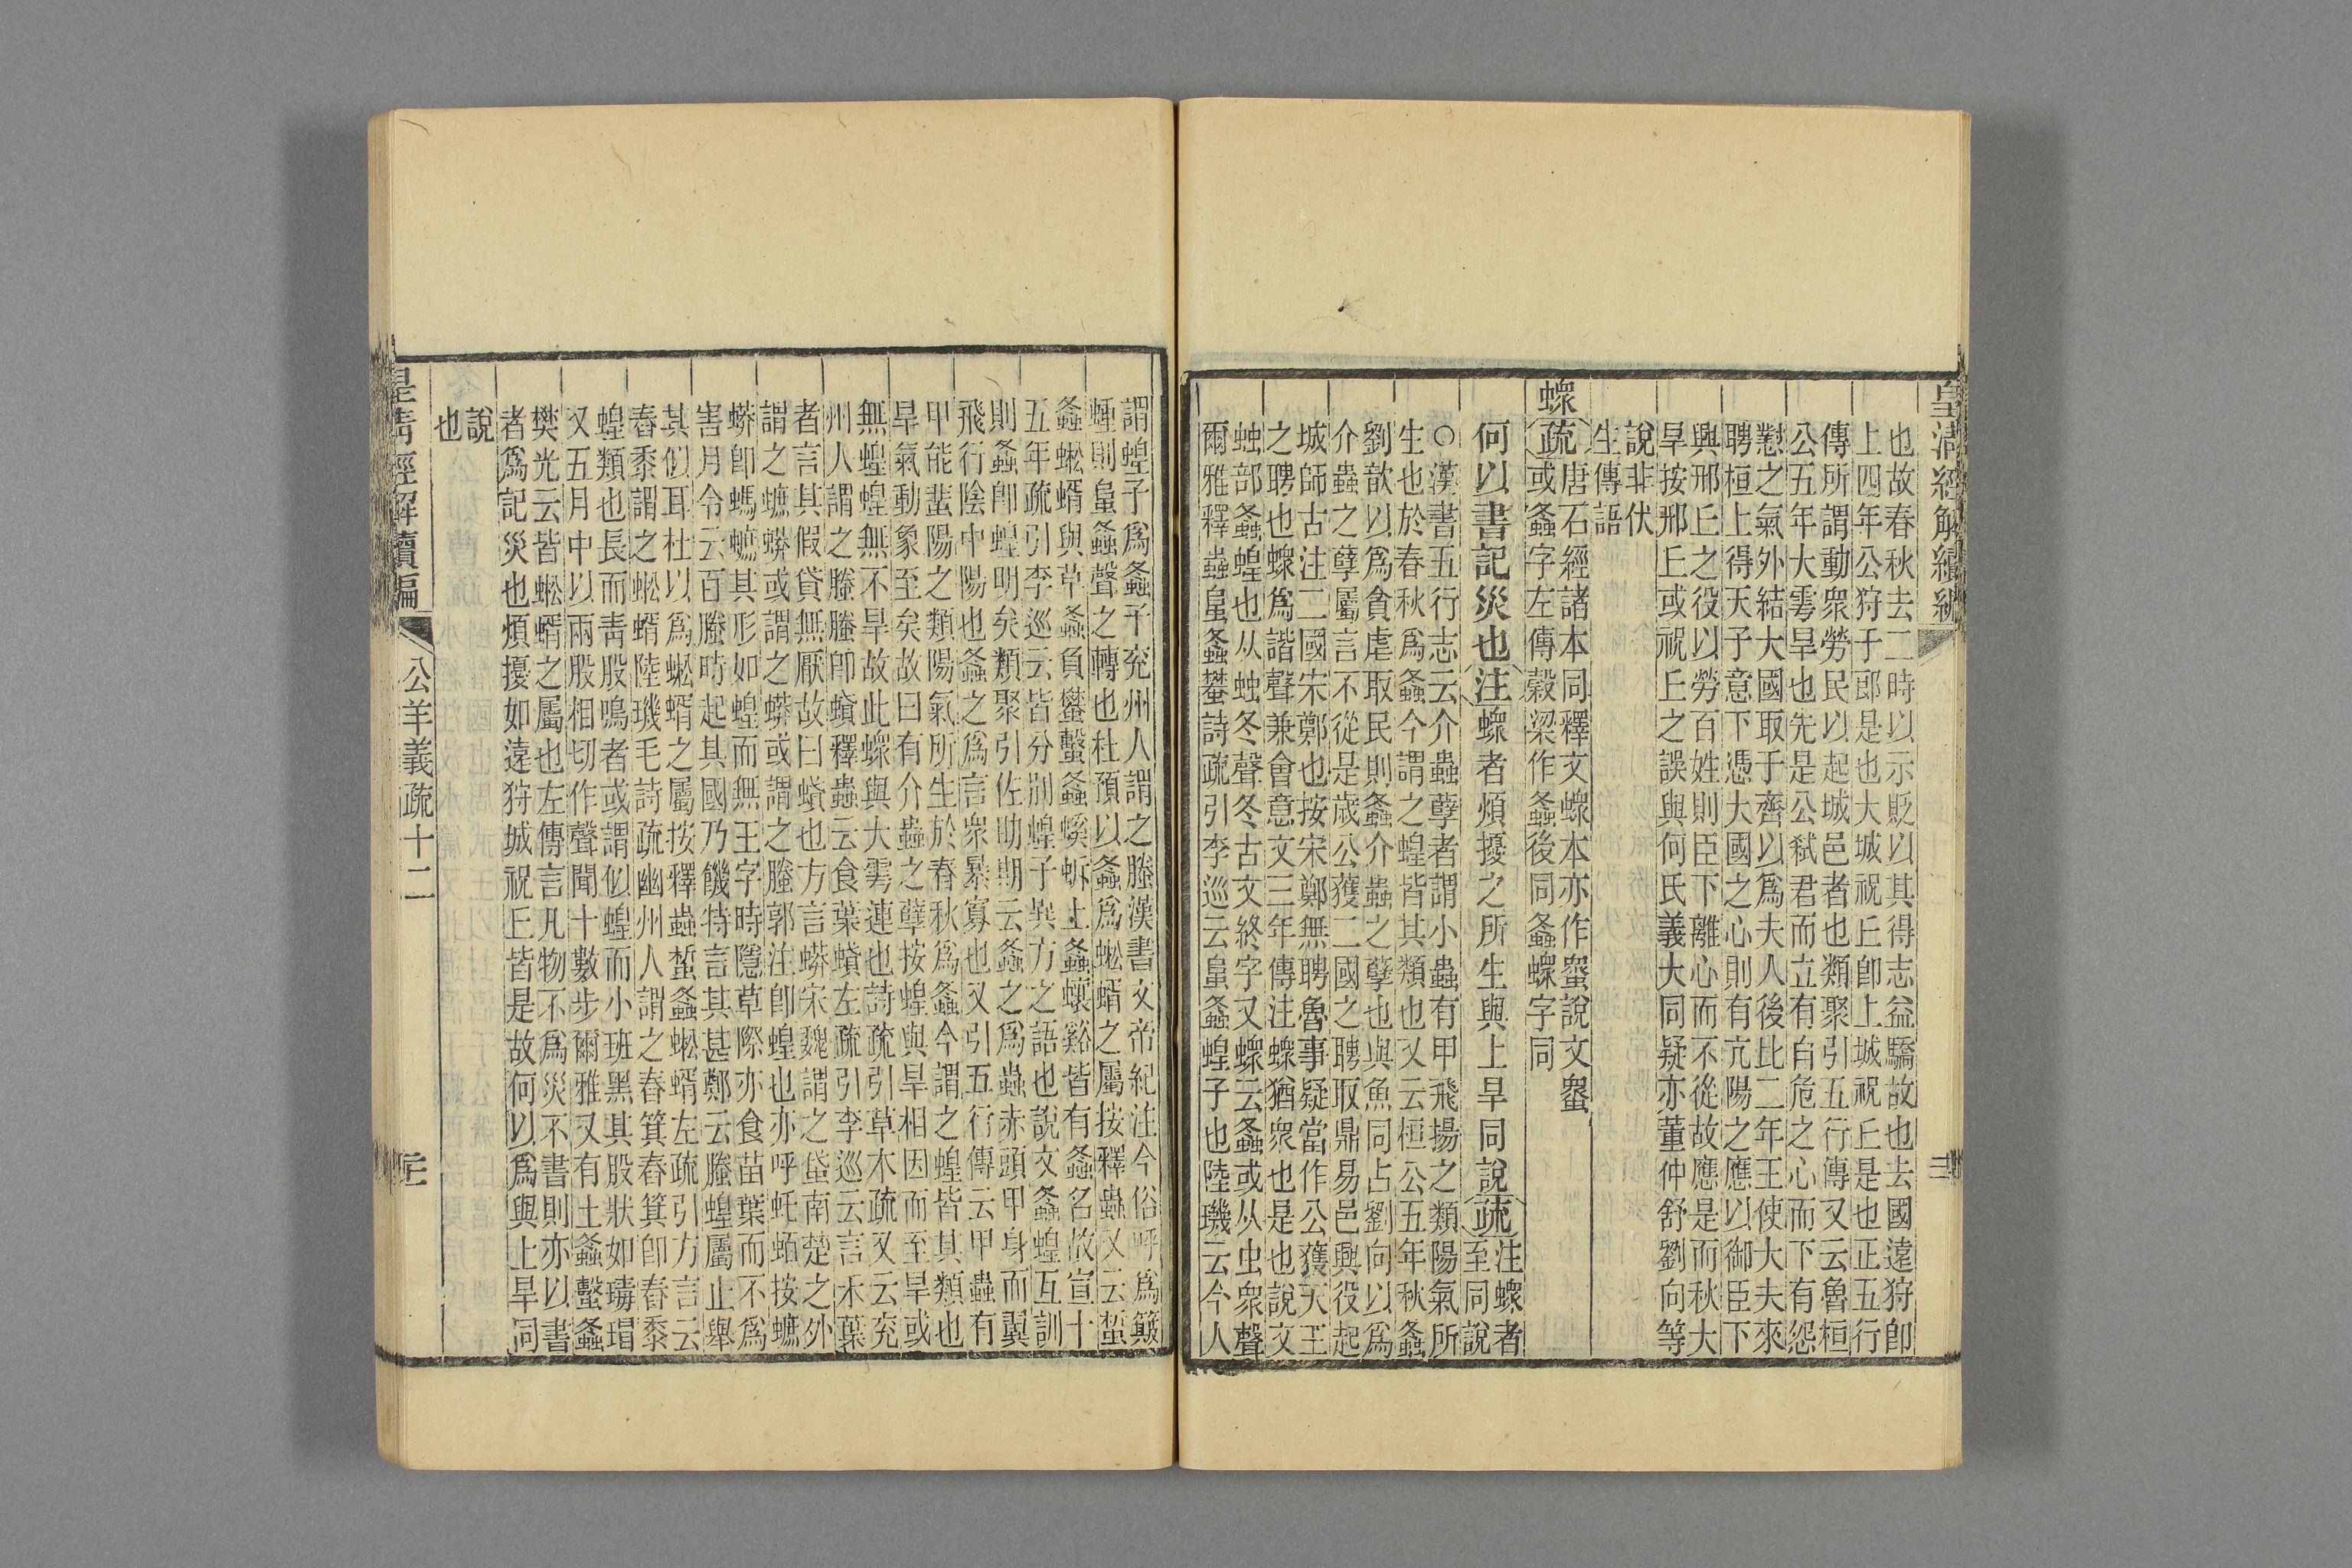 皇清經解續編
也故春秋去二時以示貶以其得志益驕故也去國遠狩卽
上四年公狩于郎是也大城祝丘卽上城祝丘是也正五行
傳所謂動衆勞民以起城邑者也類聚引五行傳又云魯桓
公五年大雩旱也先是公弒君而立有自危之心而下有怨
懟之氣外結大國取于齊以爲夫人後比二年王使大夫來
聘桓上得天子意下憑大國之心則有亢陽之應以御臣下
興邢丘之役以勞百姓則臣下離心而不從故應是而秋大
旱按邢丘或祝丘之誤與何氏義大同疑亦董仲舒劉向等
說非伏
生傳語
螽
疏唐石經諸本同釋文螽本亦作蝝說文蠡
或螽字左傳穀梁作螽後同螽蝝字同
何以書記災也注蝝者煩擾之所生與上旱同說疏注蝝者
至同說
○漢書五行志云介蟲孽者謂小蟲有甲飛揚之類陽氣所
生也於春秋爲螽今謂之蝗皆其類也又云桓公五年秋螽
劉歆以爲貪虐取民則螽介蟲之孽也與魚同占劉向以爲
介蟲之孽屬言不從是歲公獲二國之聘取鼎易邑興役起
城師古注二國宋鄭也按宋鄭無聘魯事疑當作公獲天王
之聘也蝝爲諧聲兼會意文三年傳注蝝猶衆也是也說文
䖵部螽蝗也从䖵冬聲冬古文終字又蝝云螽或从虫衆聲
爾雅釋蟲皇螽蠜詩疏引李巡云皇螽蝗子也陸璣云今人
謂蝗子爲螽子兖州人謂之螣漢書文帝紀注今俗呼爲簸
蝩則皇螽聲之轉也杜預以螽爲蜙蝑之屬按釋蟲又云蜇
螽蜙蝑與草螽負蠜蟿螽螇蚸土螽蠰谿皆有螽名故宣十
五年疏引李巡云皆分別蝗子異方之語也說文螽蝗互訓
則螽卽蝗明矣類聚引佐助期云螽之爲蟲赤頭甲身而翼
飛行陰中陽也螽之爲言衆暴寡也又引五行傳云甲蟲有
甲能蜚陽之類陽氣所生於春秋爲螽今謂之蝗皆其類也
旱氣動象至矣故曰有介蟲之孽按蝗與旱相因而至旱或
無蝗蝗無不旱故此蝝與大雩連也詩疏引草木疏又云兖
州人謂之螣螣卽蟘釋蟲云食葉蟘左疏引李巡云言禾葉
者言其假貸無厭故曰蟘也方言蟒宋魏謂之䖤南楚之外
謂之蟅蟒或謂之蟒或謂之螣郭注卽蝗也亦呼蚝蛨按蟅
蟒卽螞蟅其形如蝗而無王字時隱草際亦食苗葉而不爲
害月令云百螣時起其國乃饑特言其甚鄭云螣蝗屬止舉
其似耳杜以爲蜙蝑之屬按釋蟲蜇螽蜙蝑左疏引方言云
舂黍謂之蜙蝑陸璣毛詩疏幽州人謂之舂箕舂箕卽舂黍
蝗類也長而靑股鳴者或謂似蝗而小班黑其股狀如瑇瑁
叉五月中以兩股相切作聲聞十數步爾雅又有土螽蟿螽
樊光云皆蜙蝑之屬也左傳言凡物不爲災不書則亦以書
者爲記災也煩擾如遠狩城祝丘皆是故何以爲與上旱同
說
也
皇清經解續編
公羊義疏十二